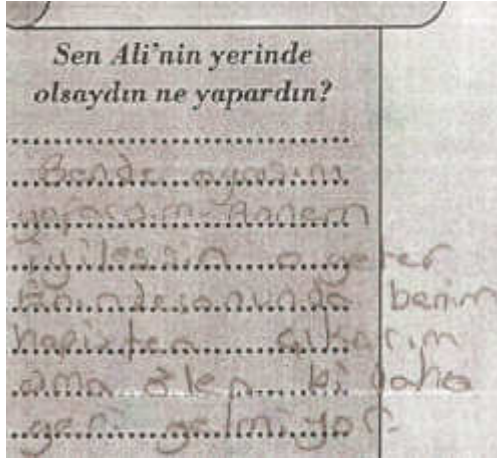 Sen Ali'nin yerinde
olsaydın ne yapardın?
Bende aynısını
yapardım. Annem
iyileşsin o yeter
Enindesonunda benim
hapisten çıkarım
ama ölen bi daha
geri gelmiyor.